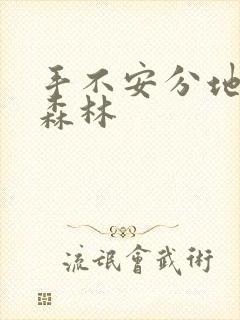 手不安分地
森林
流氓會武術